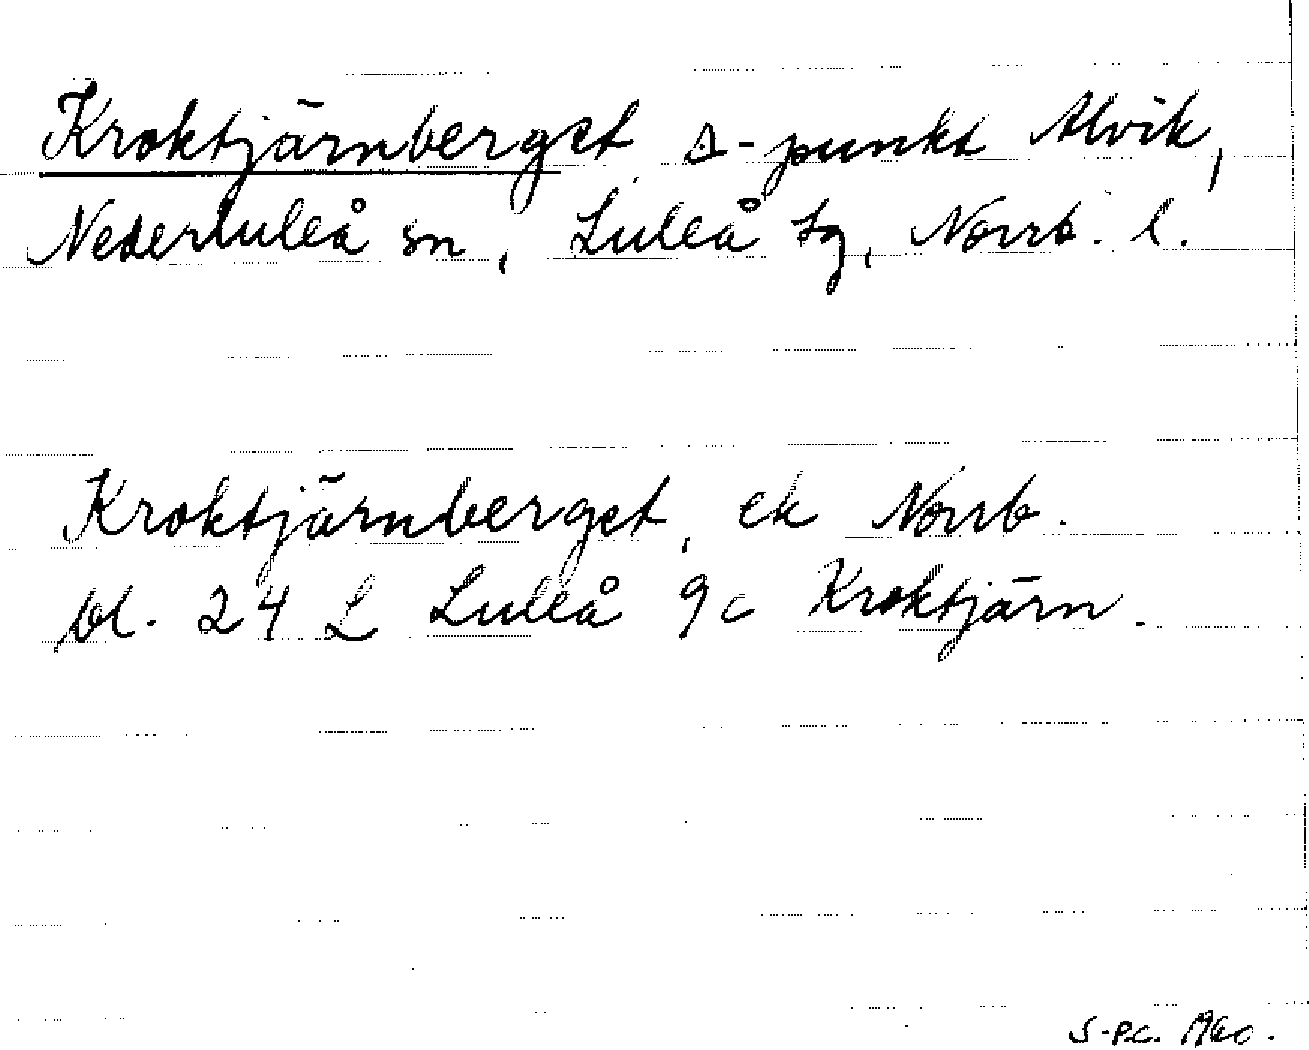 Kroktjärnberget, △-punkt Alvik,
Nederluleå sn, Luleå tg, Norrb. l.
Kroktjärnberget, ek Norrb.
bl. 24 L Luleå 9c Kroktjärn.
S-P.C. 1960.